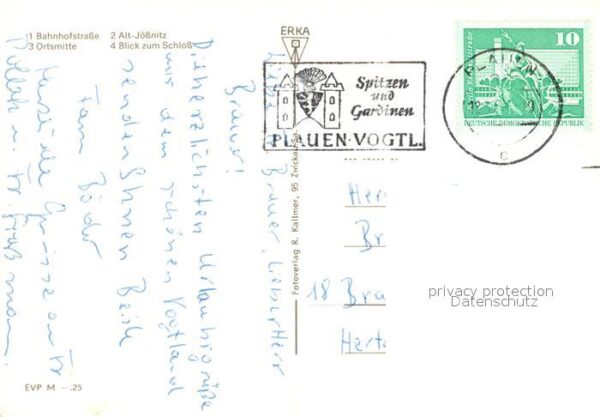 1 Bahnhofstraße 2 Alt-Jößnitz
3 Ortsmitte 4 Blick zum Schloß
ERKA
Spitzen
und
Gardinen
PLAUEN·VOGTL.
PLAUEN
c
10
DEUTSCHE DEMOKRATISCHE REPUBLIK
Fotoverlag R. Kallmer, 95 Zwickau
Brauer, lieber Herr
Brauer!
Die herzlichsten Urlaubsgrüße
aus dem schönen Vogtland
sendet Ihnen Beide
Fam
Grüsse an Fr
u. Fr.
Her
Br
18 Bra
Herte
privacy protection
Datenschutz
EVP M —.25